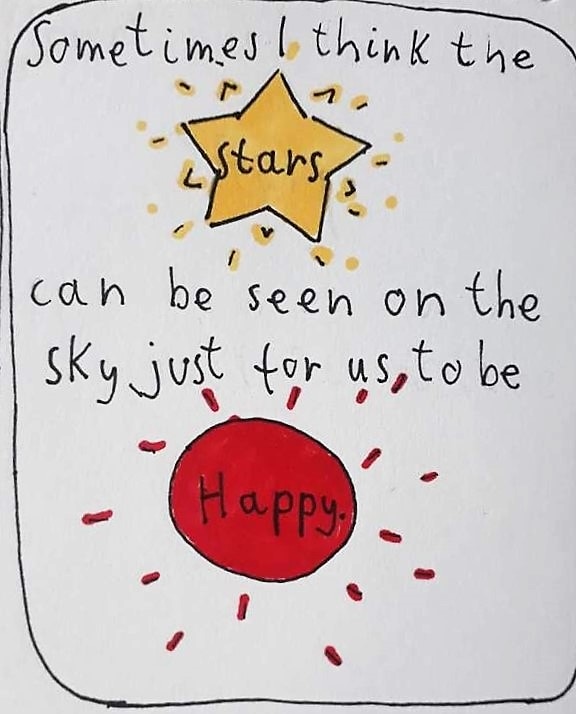 Sometimes I think the
stars
can be seen on the
sky just for us, to be
Happy.